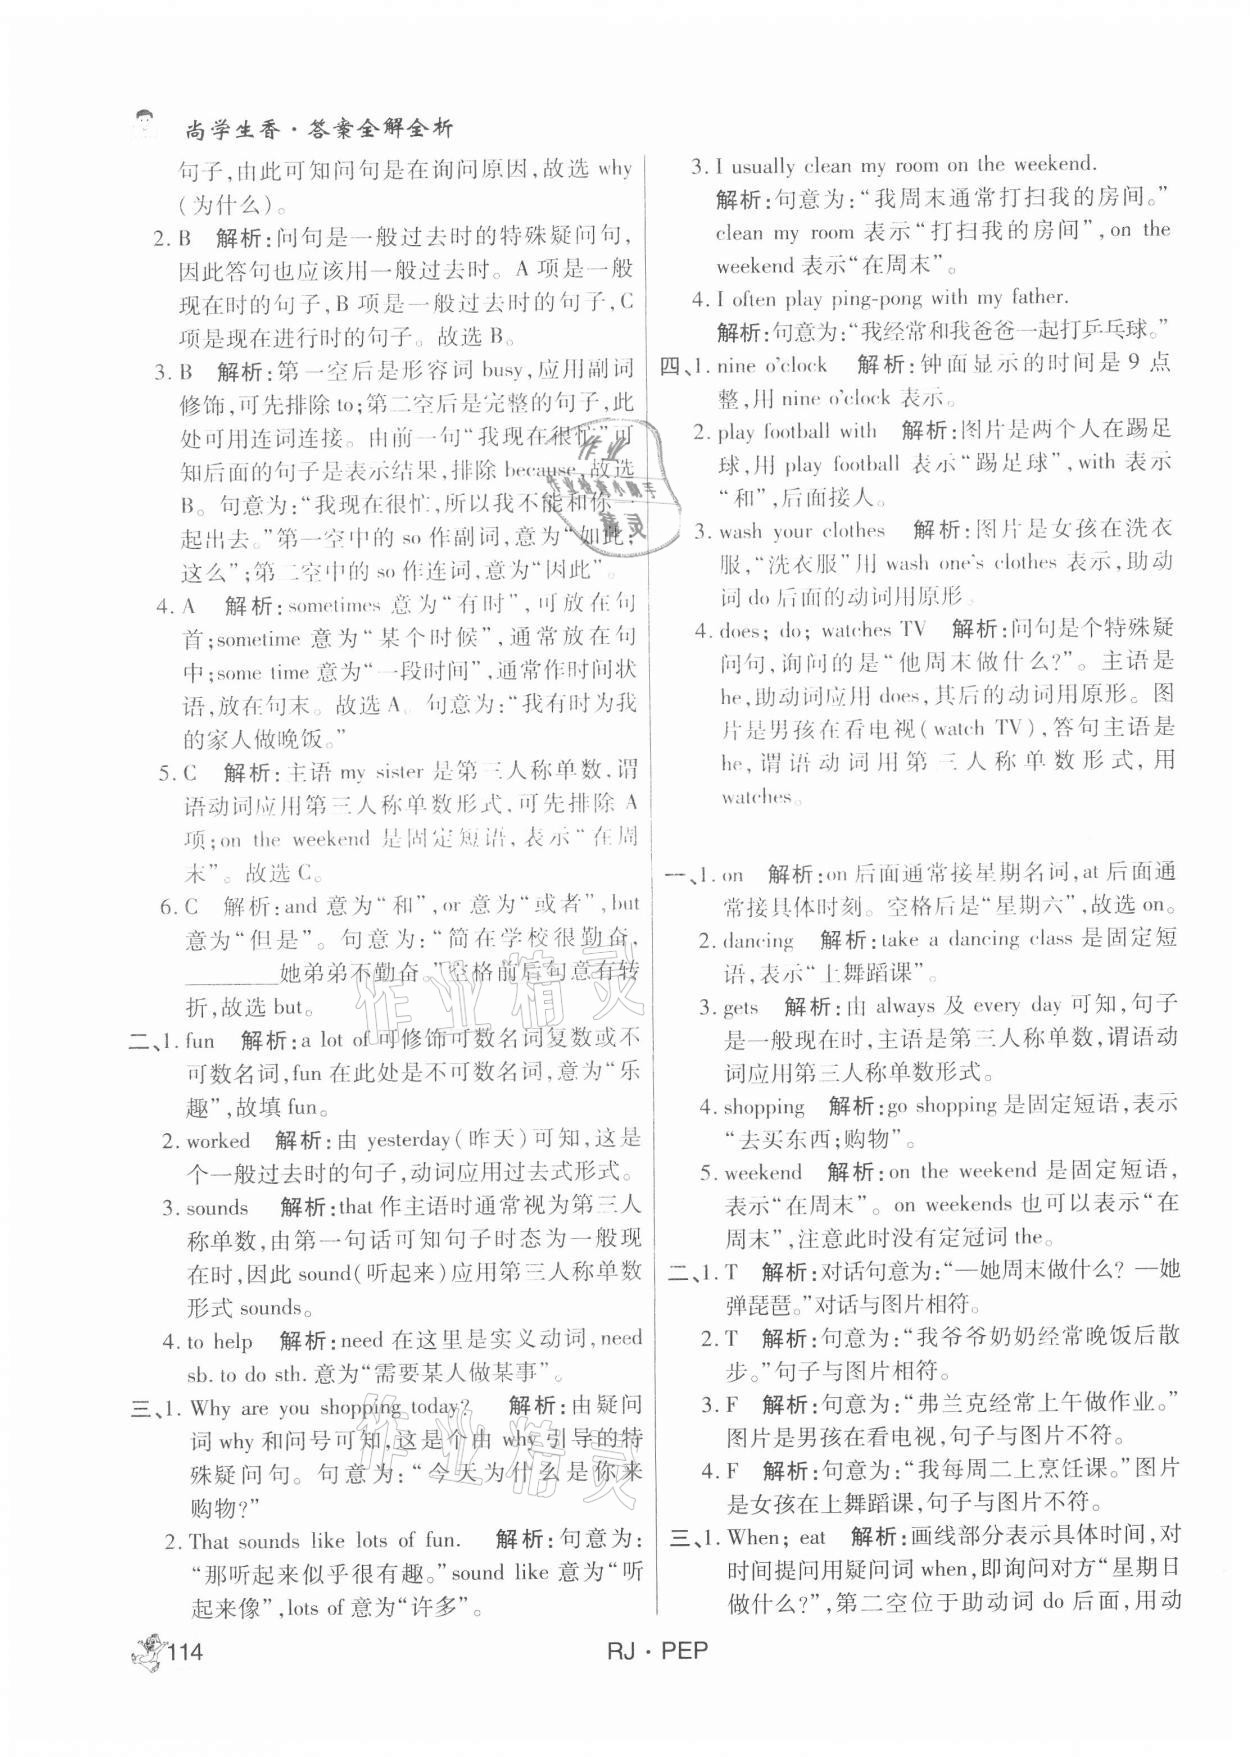 尚学生香·答案全解全析
句子,由此可知问句是在询问原因,故选 why
(为什么)。
2. B 解析:问句是一般过去时的特殊疑问句,
因此答句也应该用一般过去时。A 项是一般
现在时的句子,B 项是一般过去时的句子,C
项是现在进行时的句子。故选 B。
3. B 解析:第一空后是形容词 busy,应用副词
修饰,可先排除 to;第二空后是完整的句子,此
处可用连词连接。由前一句“我现在很忙”可
知后面的句子是表示结果,排除 because,故选
B。句意为:“我现在很忙,所以我不能和你一
起出去。”第一空中的 so 作副词,意为“如此;
这么”;第二空中的 so 作连词,意为“因此”。
4. A 解析:sometimes 意为“有时”,可放在句
首;sometime 意为“某个时候”,通常放在句
中;some time 意为“一段时间”,通常作时间状
语,放在句末。故选 A。句意为:“我有时为我
的家人做晚饭。”
5. C 解析:主语 my sister 是第三人称单数,谓
语动词应用第三人称单数形式,可先排除 A
项;on the weekend 是固定短语,表示“在周
末”。故选 C。
6. C 解析:and 意为“和”,or 意为“或者”,but
意为“但是”。句意为:“简在学校很勤奋,
______她弟弟不勤奋。”空格前后句意有转
折,故选 but。
二、1. fun 解析:a lot of 可修饰可数名词复数或不
可数名词,fun 在此处是不可数名词,意为“乐
趣”,故填 fun。
2. worked 解析:由 yesterday(昨天)可知,这是
个一般过去时的句子,动词应用过去式形式。
3. sounds 解析:that 作主语时通常视为第三人
称单数,由第一句话可知句子时态为一般现
在时,因此 sound(听起来)应用第三人称单数
形式 sounds。
4. to help 解析:need 在这里是实义动词,need
sb. to do sth. 意为“需要某人做某事”。
三、1. Why are you shopping today? 解析:由疑问
词 why 和问号可知,这是个由 why 引导的特
殊疑问句。句意为:“今天为什么是你来
购物?”
2. That sounds like lots of fun. 解析:句意为:
“那听起来似乎很有趣。”sound like 意为“听
起来像”,lots of 意为“许多”。
3. I usually clean my room on the weekend.
解析:句意为:“我周末通常打扫我的房间。”
clean my room 表示“打扫我的房间”,on the
weekend 表示“在周末”。
4. I often play ping-pong with my father.
解析:句意为:“我经常和我爸爸一起打乒乓球。”
四、1. nine o'clock 解析:钟面显示的时间是 9 点
整,用 nine o'clock 表示。
2. play football with 解析:图片是两个人在踢足
球,用 play football 表示“踢足球”,with 表示
“和”,后面接人。
3. wash your clothes 解析:图片是女孩在洗衣
服,“洗衣服”用 wash one's clothes 表示,助动
词 do 后面的动词用原形。
4. does; do; watches TV 解析:问句是个特殊疑
问句,询问的是“他周末做什么?”。主语是
he,助动词应用 does,其后的动词用原形。图
片是男孩在看电视(watch TV),答句主语是
he,谓语动词用第三人称单数形式,用
watches。
一、1. on 解析:on 后面通常接星期名词,at 后面通
常接具体时刻。空格后是“星期六”,故选 on。
2. dancing 解析:take a dancing class 是固定短
语,表示“上舞蹈课”。
3. gets 解析:由 always 及 every day 可知,句子
是一般现在时,主语是第三人称单数,谓语动
词应用第三人称单数形式。
4. shopping 解析:go shopping 是固定短语,表示
“去买东西;购物”。
5. weekend 解析:on the weekend 是固定短语,
表示“在周末”。on weekends 也可以表示“在
周末”,注意此时没有定冠词 the。
二、1. T 解析:对话句意为:“—她周末做什么? —她
弹琵琶。”对话与图片相符。
2. T 解析:句意为:“我爷爷奶奶经常晚饭后散
步。”句子与图片相符。
3. F 解析:句意为:“弗兰克经常上午做作业。”
图片是男孩在看电视,句子与图片不符。
4. F 解析:句意为:“我每周二上烹饪课。”图片
是女孩在上舞蹈课,句子与图片不符。
三、1. When; eat 解析:画线部分表示具体时间,对
时间提问用疑问词 when,即询问对方“星期日
做什么?”,第二空位于助动词 do 后面,用动
114
RJ·PEP
作业
作业检查小助手
精灵
作业精灵
作业精灵